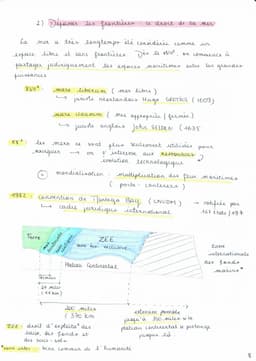 2) Dépasser les frontières : le droit de la mer
La mer a très longtemps été considérée comme un
espace libre et sans frontières. Dès le XVIIe, on commence à
partager juridiquement les espaces maritimes entre les grandes
puissances
XVIIe mare liberum ( mer libre )
↳ juriste néerlandais Hugo GROTIUS (1609)
mare clausum ( mer appropriée / fermée )
↳ juriste anglais John SELDEN (1635
XXe les mers se sont plus réellement utilisées pour
naviguer → on s'intéresse aux ressources
évolution technologique
mondialisation : multiplication des flux maritimes
( porte-conteneurs )
1982 : convention de Montego Bay (CNUDM) → ratifiée par
↳ cadre juridique international
Terre
ZEE
Plateau Continental
Zone
internationale
des fonds
marins*
200 milles
( 370 km )
extension possible
jusqu'à 350 milles si le
plateau continental se prolonge
jusque là
ZEE : droit d'exploitat° des
eaux, des fonds et
des sous-sols
bien commun de l'humanité